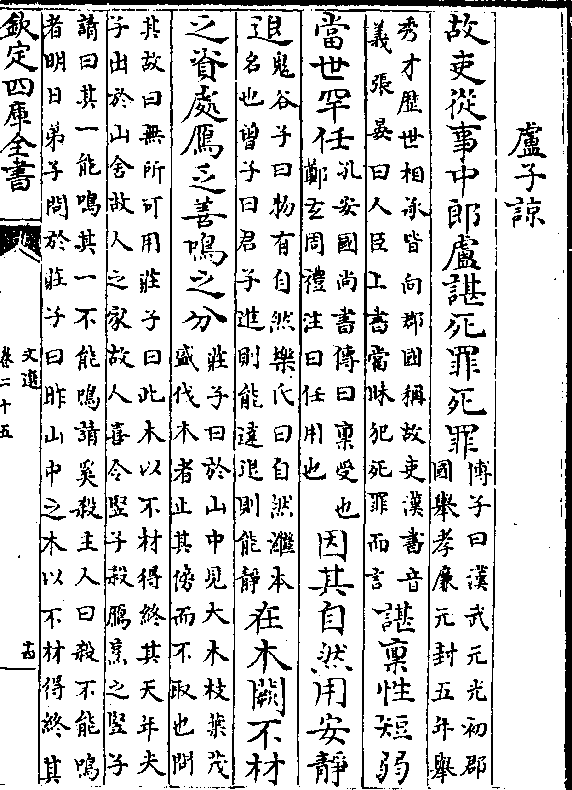 盧子諒
故吏從事中郎盧諶死罪死罪
傅子曰漢武元光初郡
國舉孝廉元封五年舉
秀才歷世相承皆向郡國稱故吏漢書音
義張晏曰人臣上書當昧犯死罪而言
諶稟性短弱
當世罕任
孔安國尚書傳曰稟受也
鄭玄周禮注曰任用也
因其自然用安靜
退
鬼谷子曰物有自然樂氏曰自然繼本
名也曾子曰君子進則能達退則能靜
在木闕不材
之資處鴈乏善鳴之分
莊子曰於山中見大木枝葉茂
盛伐木者止其傍而不取也問
其故曰無所可用莊子曰此木以不材得終其天年夫
子出於山舍故人之家故人喜令豎子殺鴈烹之豎子
請曰其一能鳴其一不能鳴請奚殺主人曰殺不能鳴
者明日弟子問於莊子曰昨山中之木以不材得終其
欽定四庫全書
文選
卷二十五
十四